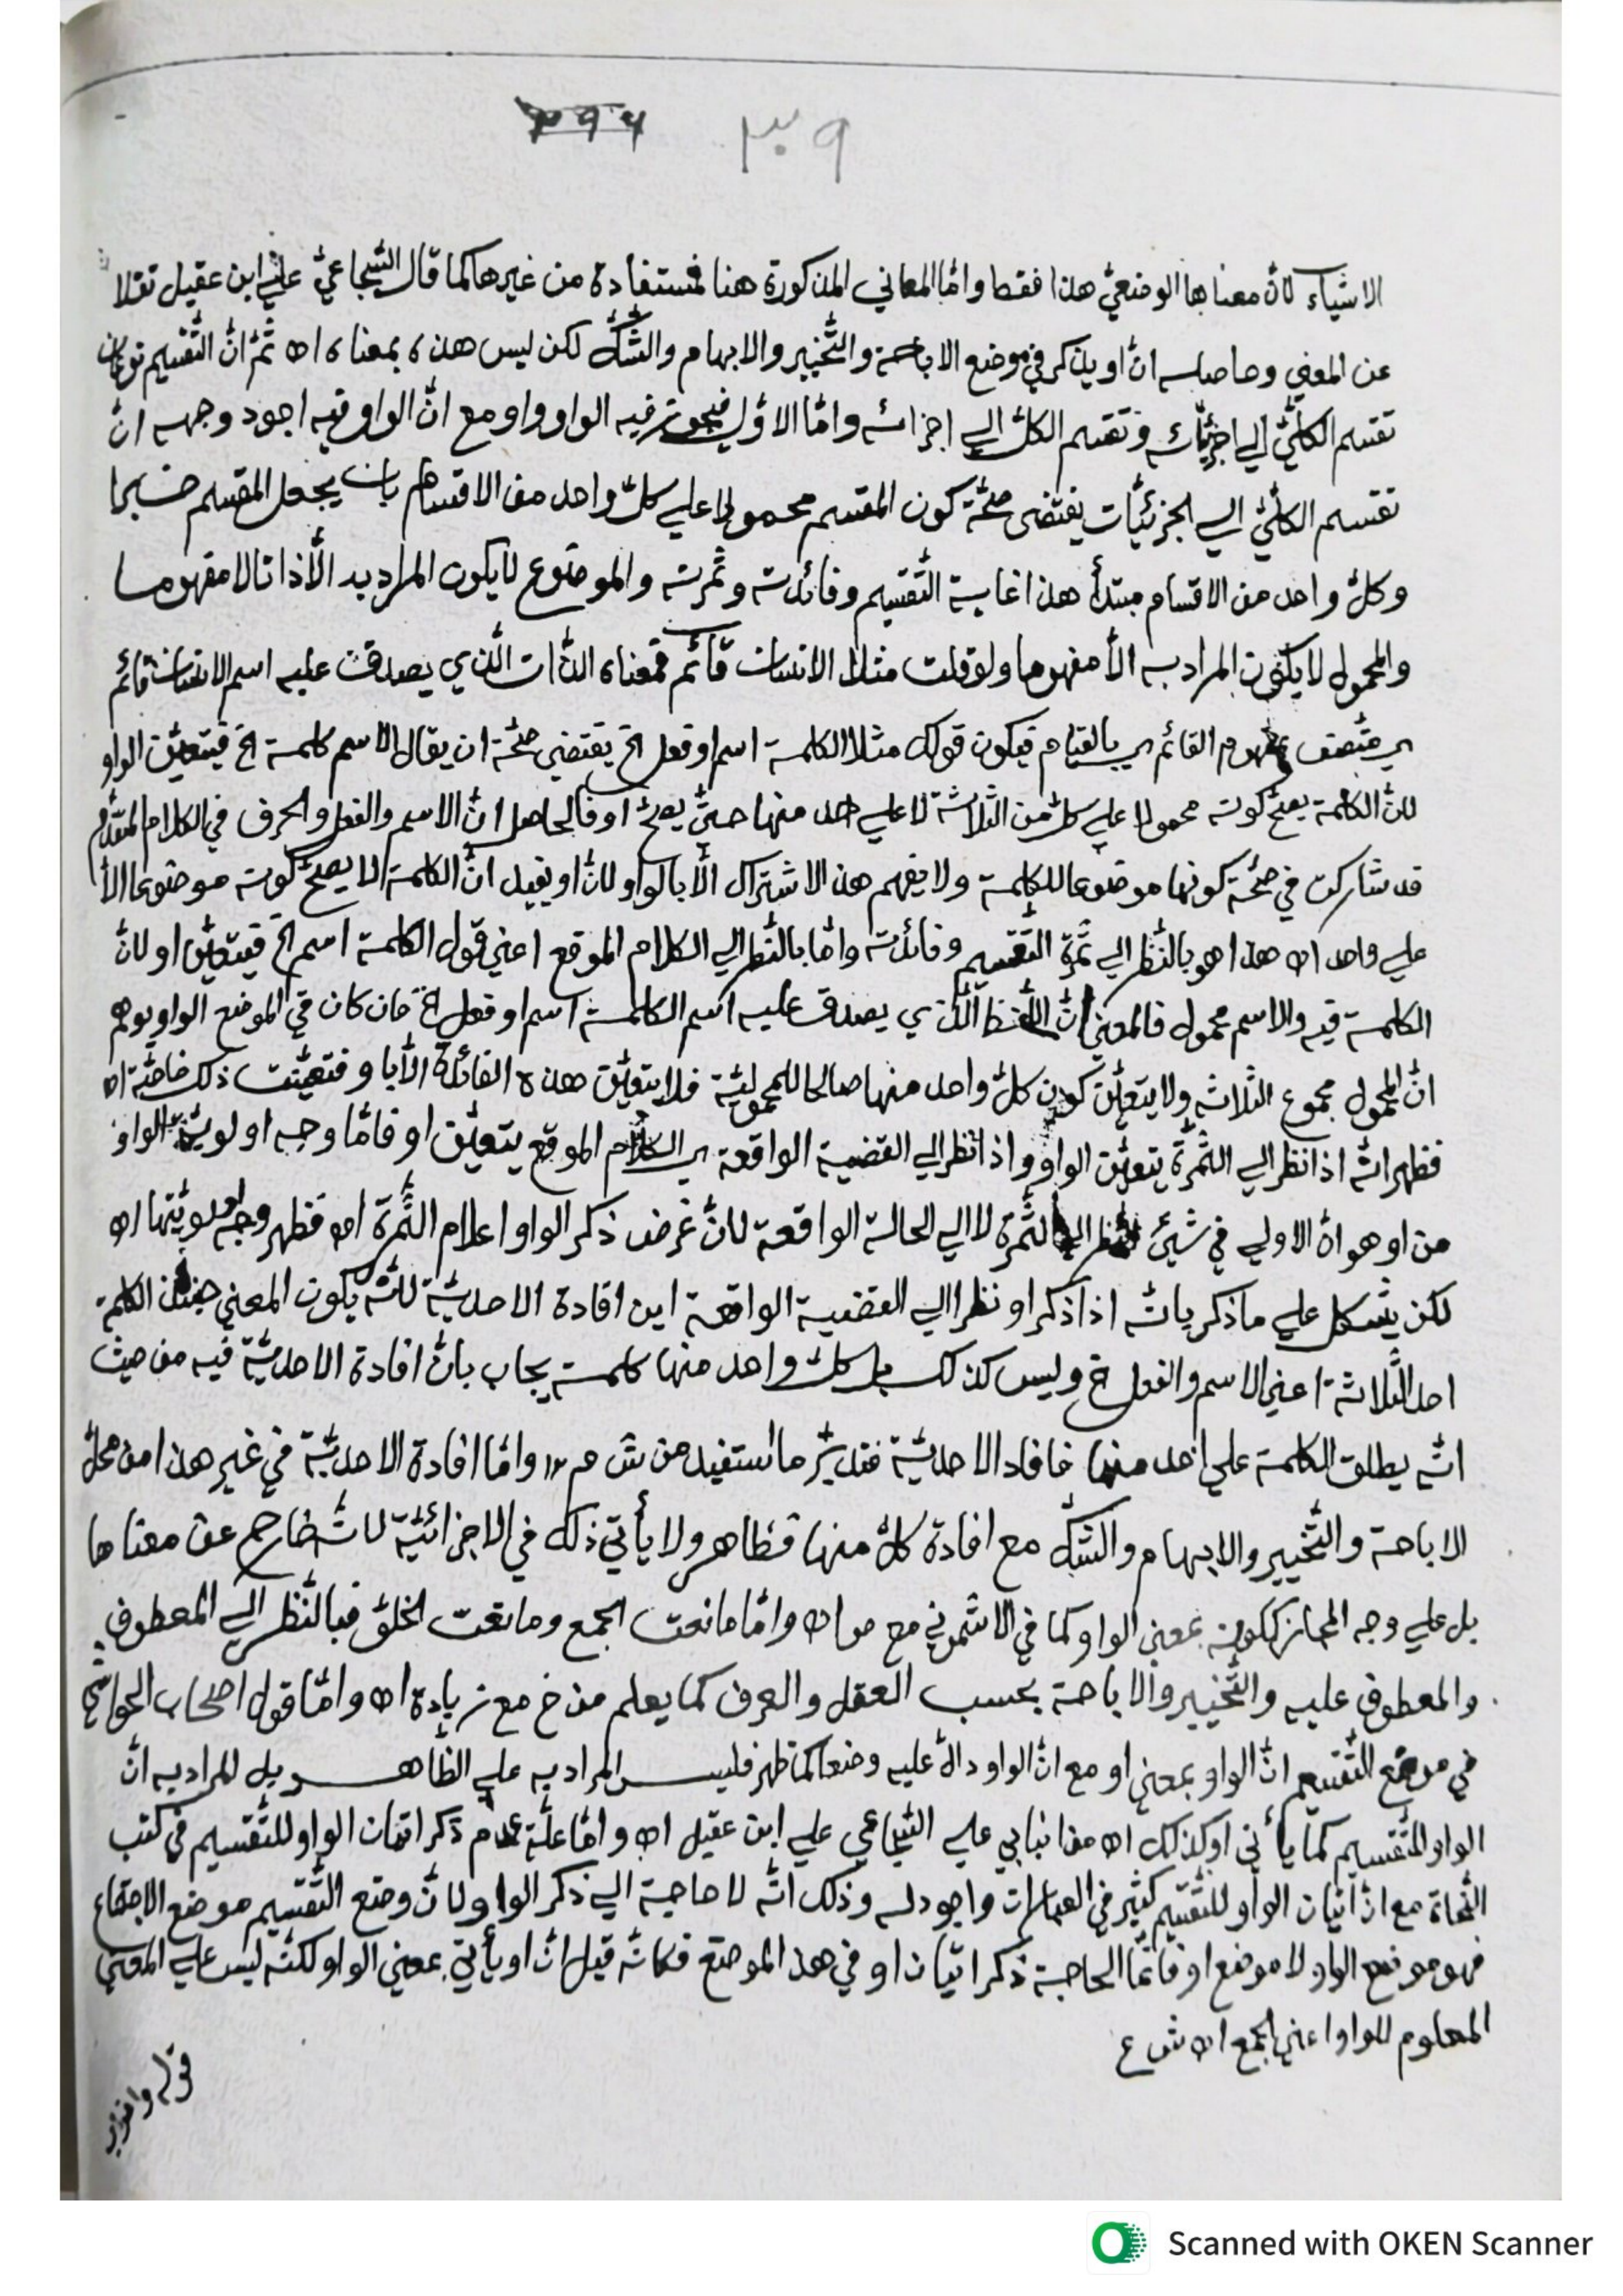 ٣٩٦ ٣٠٩
الاشياء لانّ معناها الوضعيّ هذا فقط وامّا المعاني المذكورة هنا فمستفادة من غيرها كما قال السّجاعيّ علي ابن عقيل نقلا
عن المغني وحاصله انّ او يذكر في موضع الاباحة والتّخيير والابهام والشّكّ لكن ليس هذه بمعناه اه ثمّ انّ التّقسيم نوعان
تقسيم الكلّيّ الي اجزئيّاته وتقسيم الكلّ الي اجزائه وامّا الاوّل فيجوز فيه الواو واو مع انّ الواو فيه اجود وجهه انّ
تقسيم الكلّيّ الي الجزئيّات يقتضى صحّة كون المقسم محمولا علي كلّ واحد من الاقسام بان يجعل المقسم خبرا
وكلّ واحد من الاقسام مبتدأ هذا غاية التّقسيم وفائدته وثمرته والموضوع لايكون المراد به الّا ذاتا لا مفهوما
والمحمول لايكون المراد به الّا مفهوما ولو قلت مثلا الانسان قائم فمعناه الذّات الّذي يصدق عليه اسم الانسان قائم
اي متّصف بمفهوم القائم اي بالقيام فيكون قولك مثلا الكلمة اسم او فعل الخ يقتضى صحّة ان يقال الاسم كلمة الخ فيتعيّن الواو
لانّ الكلمة يصحّ كونه محمولا علي كلّ من الثّلاثة لا علي احد منها حتّي يصحّ او فالحاصل انّ الاسم والفعل والحرف في الكلام المتقدّم
قد شاركت في صحّة كونها موضوعا للكلمة ولا يفهم هذا الاشتراك الّا بالواو لانّ او يفيد انّ الكلمة لا يصحّ كونه موضوعا الّا
علي واحد اه هذا هو بالنّظر الي ثمرة التّقسيم وفائدته وامّا بالنّظر الي الكلام الموقع اعني قول الكلمة اسم الخ فيتعيّن او لانّ
الكلمة فيه والاسم محمول فالمعني انّ اللّفظ الّذي يصدق عليه اسم الكلمة اسم او فعل الخ فان كان في الموضع الواو يوهم
انّ المحمول مجموع الثّلاثة ولا يتعيّن كون كلّ واحد منها صالحا للمحموليّة فلا يتعيّن هذه الفائدة الّا باو فتعيّنت ذلك اه
فظهر انّه اذا نظر الي الثّمرة يتعيّن الواو واذا نظر الي القضية الواقعة اي الكلام الموقع يتعيّن او فامّا وجه اولويّة الواو
من او هو انّ الاولي في شيئ النّظر الي الثّمرة لا الي الحالة الواقعة لانّ غرض ذكر الواو اعلام الثّمرة اه فظهر وجه اولويّتها اه
لكن يشكل علي ما ذكر بانّه اذا ذكر او نظرا الي القضية الواقعة اين افادة الاحديّة لانّه يكون المعني حينئذ الكلمة
احد الثّلاثة اعني الاسم والفعل الخ وليس كذلك بل كلّ واحد منها كلمة يجاب بانّ افادة الاحديّة فيه من حيث
انّه يطلق الكلمة علي احد منها فافاد الاحديّة فتدبّر ما استفيد من ش م ر وامّا افادة الاحديّة في غير هذا من محلّ
الاباحة والتّخيير والابهام والشّكّ مع افادة كلّ منها فظاهر ولا يأتي ذلك في الاجزائيّة لانّه خارج عن معناها
بل علي وجه المجاز ككونه بمعني الواو كما في الاشموني مع ص اه وامّا مانعت الجمع ومانعت الخلوّ فبالنّظر الي المعطوف
والمعطوف عليه والتّخيير والاباحة بحسب العقل والعرف كما يعلم من خ مع زيادة اه وامّا قول اصحاب الحواشي
في موضع التّقسيم انّ الواو بمعني او مع انّ الواو دالّ عليه وضعا كما ظهر فليس المراد به علي الظّاهر بل المراد به انّ
الواو للتّقسيم كما يأتي او كذلك اه من انبابي علي السّجاعي علي ابن عقيل اه وامّا علّة عدم ذكر اتيان الواو للتّقسيم في كتب
النّحاة مع انّ اتيان الواو للتّقسيم كثير في العبارات واجود له وذلك انّه لا حاجة الي ذكر الواو لانّ وضع التّقسيم موضع الاجتماع
فهو موضع الواو لا موضع او فانّما الحاجة ذكر اتيان او في هذا الموضع فكانّه قيل انّ او يأتي بمعني الواو لكنّه ليس علي المعني
المعلوم للواو اعني الجمع اه ش ع
قوله واضرب
Scanned with OKEN Scanner